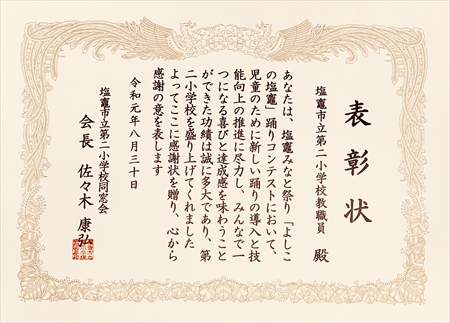 表彰状
塩竈市立第二小学校教職員 殿
あなたは、塩竈みなと祭り「よしこ
の塩竈」踊りコンテストにおいて、
児童のために新しい踊りの導入と技
能向上の推進に尽力し、みんなで一
つになる喜びと達成感を味わうこと
ができた功績は誠に多大であり、第
二小学校を盛り上げてくれました
よってここに感謝状を贈り、心から
感謝の意を表します
令和元年八月三十日
塩竈市立第二小学校同窓会
会長 佐々木 康弘